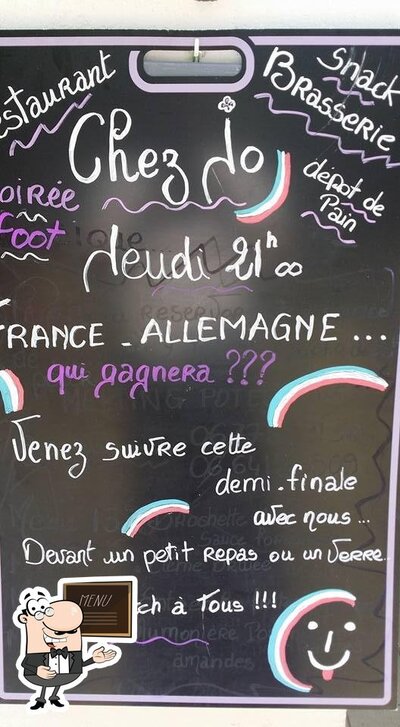 Restaurant
Snack
Brasserie
Chez Jo
dépot de
Pain
Soirée
foot
Jeudi 21h00
FRANCE - ALLEMAGNE ...
qui gagnera ???
Venez suivre cette
demi.finale
avec nous...
Devant un petit Repas ou un Verre..
à Tous !!!
amandes
MENU